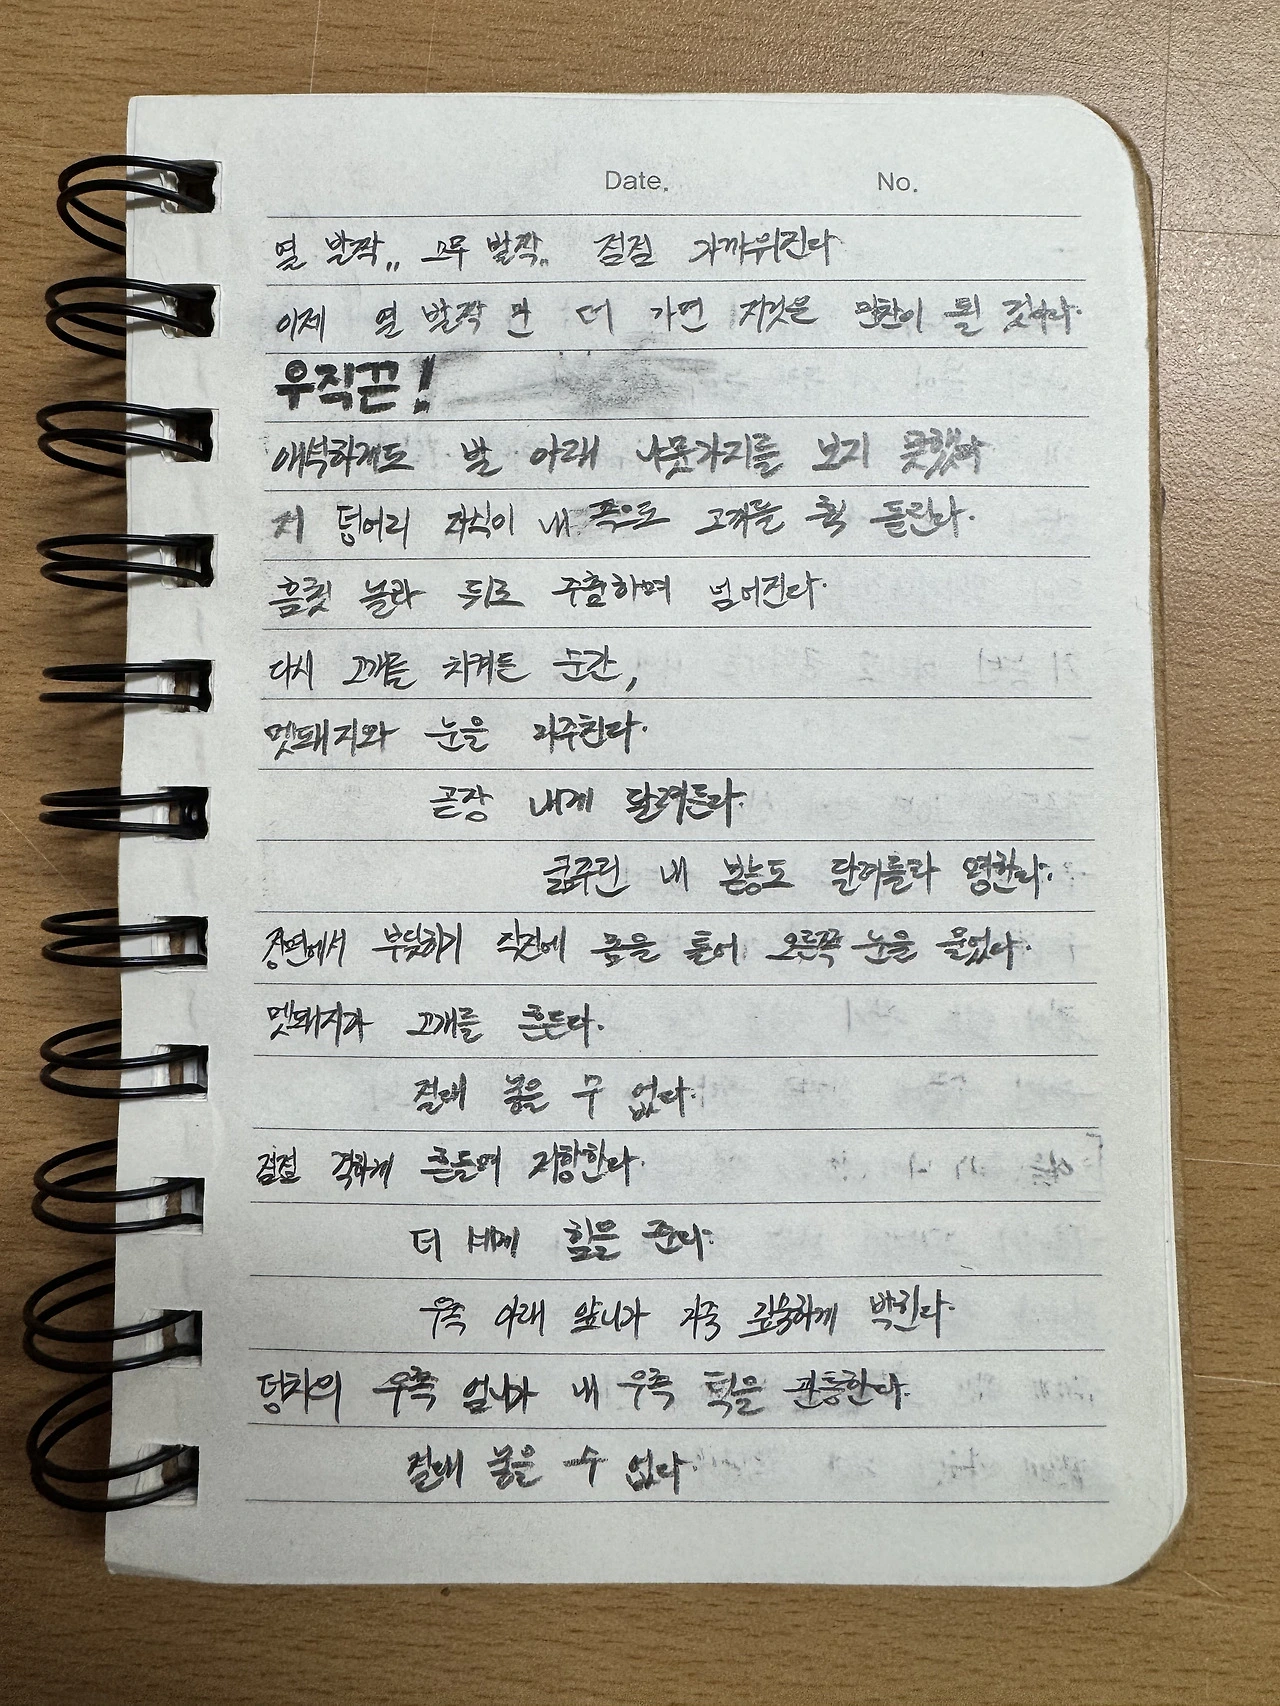 Date. No.
열 발짝,, 스무 발짝,, 점점 가까워진다
이제 열 발짝 만 더 가면 저것은 만찬이 될 것이다.
우직끈!
애석하게도 발 아래 나뭇가지를 보지 못했다
저 덩어리 자식이 내 쪽으로 고개를 휙 돌린다.
흠칫 놀라 뒤로 주춤하며 넘어진다.
다시 고개를 치켜든 순간,
멧돼지와 눈을 마주친다.
곧장 내게 달려든다.
굶주린 내 본능도 달려들라 명한다.
정면에서 부딪하기 직전에 몸을 틀어 오른쪽 눈을 물었다.
멧돼지가 고개를 흔든다.
절대 놓을 수 없다.
점점 격하게 흔들며 저항한다.
더 세게 힘을 준다.
우측 아래 앞니가 가죽 깊숙하게 박힌다.
덩치의 우측 엄니가 내 우측 턱을 관통한다.
절대 놓을 수 없다.